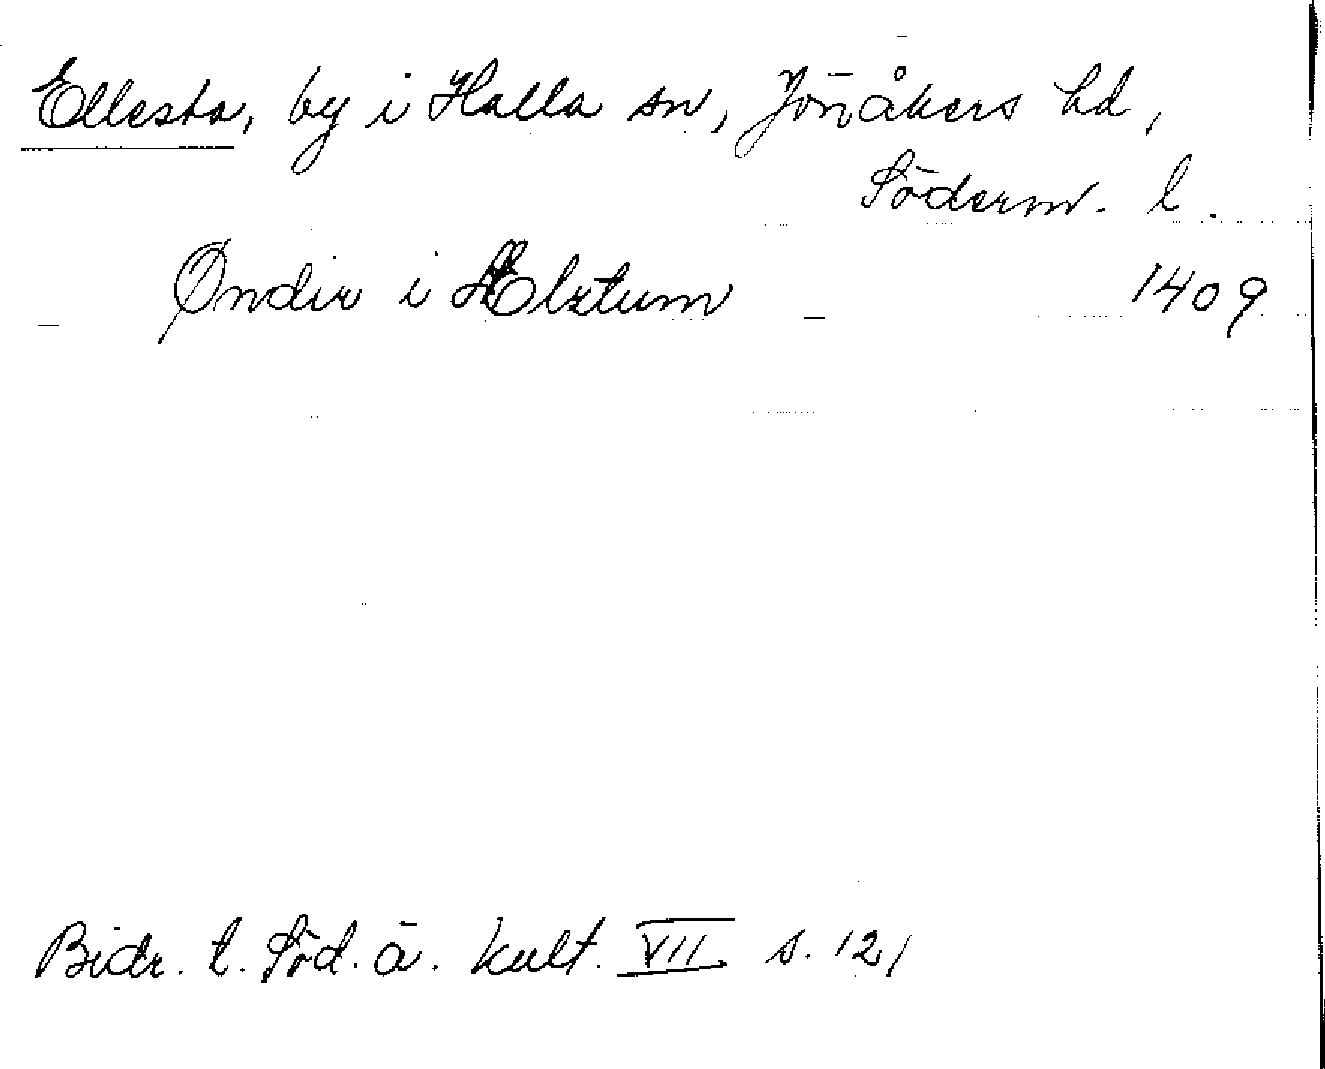 Ellesta, by i Halla sn, Jönåkers hd,
Söderm. l.
Øndir i Ælxtum 1409
Bidr. t. Söd. ä. kult. VII s. 121